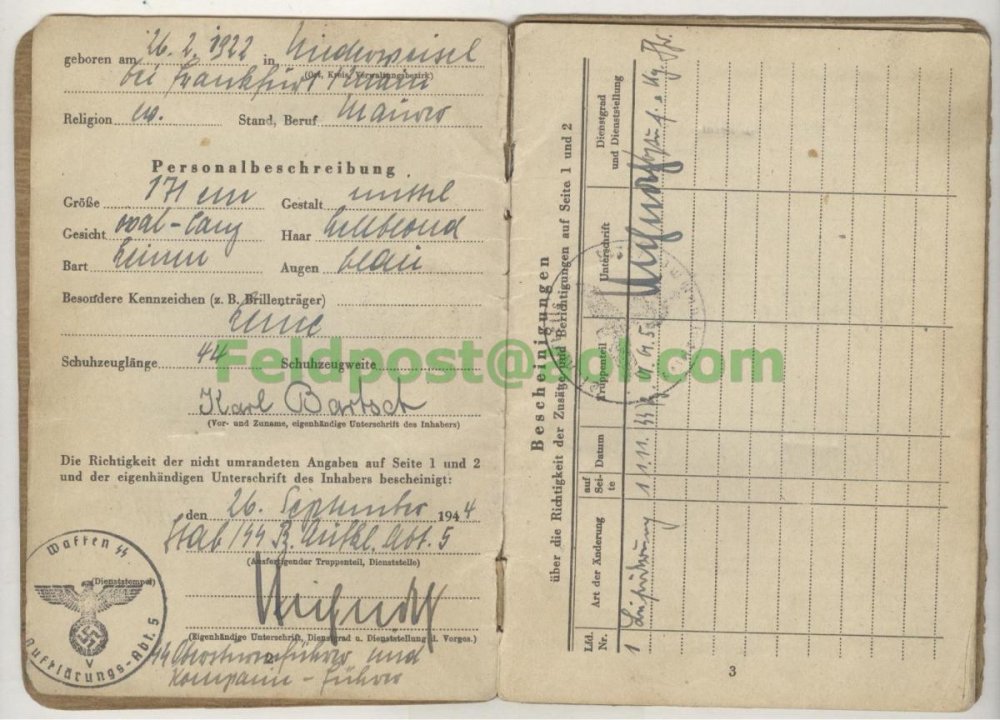 geboren am 26. 2. 1922 in Niederweisel
(Ort, Kreis, Verwaltungsbezirk)
bei Frankfurt Main
Religion ev. Stand, Beruf Maurer
Personalbeschreibung
Größe 171 cm Gestalt mittel
Gesicht oval-lang Haar hellblond
Bart keinen Augen blau
Besondere Kennzeichen (z. B. Brillenträger)
keine
Schuhzeuglänge 44 Schuhzeugweite
Feldpost@aol.com
Karl Bartsch
(Vor- und Zuname, eigenhändige Unterschrift des Inhabers)
Die Richtigkeit der nicht umrandeten Angaben auf Seite 1 und 2
und der eigenhändigen Unterschrift des Inhabers bescheinigt:
den 26. September 1944
Stab/SS Pz. Aufkl. Abt. 5
(Ausfertigender Truppenteil, Dienststelle)
Waffen SS
(Dienststempel)
V
Aufklärungs-Abt. 5
(Eigenhändige Unterschrift, Dienstgrad u. Dienststellung d. Vorges.)
SS Obersturmführer und
2
Kompanie-Führer
Bescheinigungen
über die Richtigkeit der Zusätze und Berichtigungen auf Seite 1 und 2
Lfd. Nr.
Art der Änderung
auf Seite
Datum
Truppenteil
Unterschrift
Dienstgrad und Dienststellung
1
1
1.11.
3